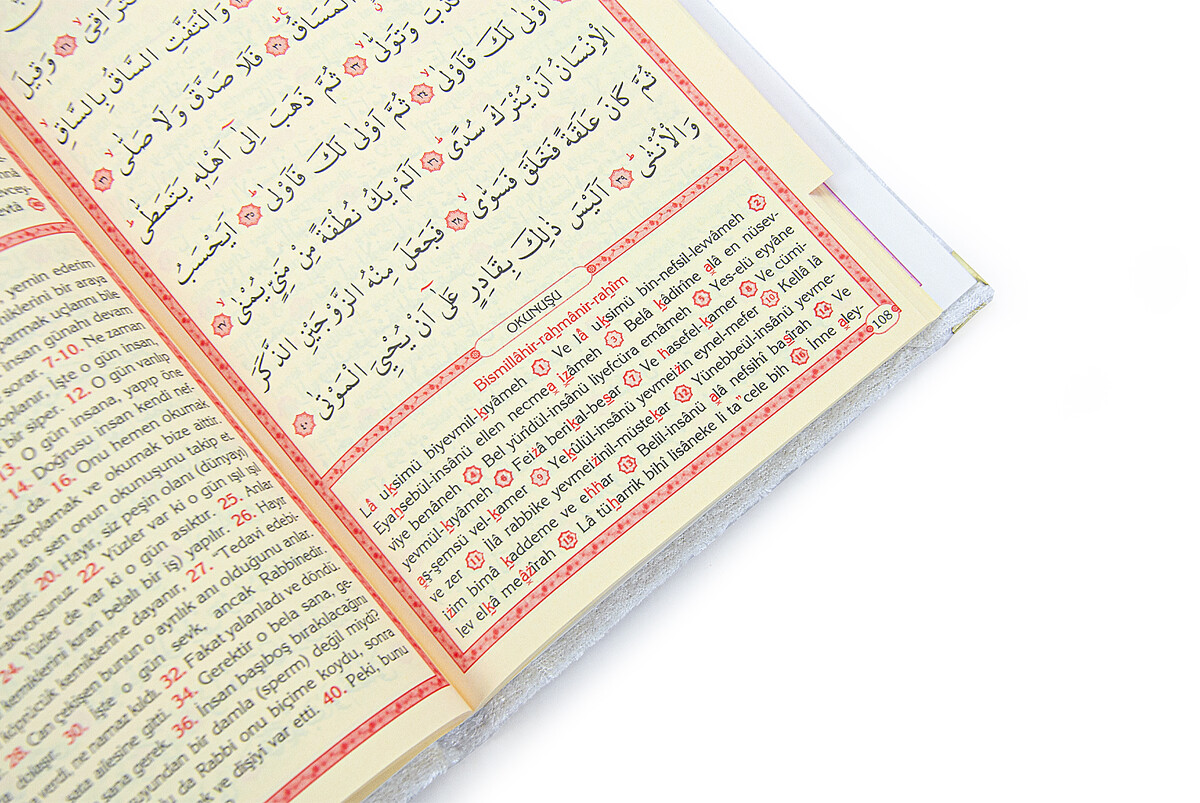 التَّرَاقِيَ ﴿٢٦﴾ وَقِيلَ
وَالْتَفَّتِ السَّاقُ بِالسَّاقِ
الْمَسَاقُ ﴿٣٠﴾ فَلَا صَدَّقَ وَلَا صَلّٰى ﴿٣١﴾
وَتَوَلّٰى ﴿٣٢﴾ ثُمَّ ذَهَبَ اِلٰٓى اَهْلِهٖ يَتَمَطّٰى
اَوْلٰى لَكَ فَاَوْلٰى ﴿٣٤﴾ ثُمَّ اَوْلٰى لَكَ فَاَوْلٰى ﴿٣٥﴾ اَيَحْسَبُ
الْاِنْسَانُ اَنْ يُتْرَكَ سُدًى ﴿٣٦﴾ اَلَمْ يَكُ نُطْفَةً مِنْ مَنِيٍّ يُمْنٰى ﴿٣٧﴾
ثُمَّ كَانَ عَلَقَةً فَخَلَقَ فَسَوّٰى ﴿٣٨﴾ فَجَعَلَ مِنْهُ الزَّوْجَيْنِ الذَّكَرَ
وَالْاُنْثٰى ﴿٣٩﴾ اَلَيْسَ ذٰلِكَ بِقَادِرٍ عَلٰٓى اَنْ يُحْيِيَ الْمَوْتٰى ﴿٤٠﴾
OKUNUŞU
Bismillâhir-rahmânir-rahîm
Lâ uksimü biyevmil-kıyâmeh 1 Ve lâ uksimü bin-nefsil-levvâmeh 2
Eyahsebül-insânü ellen necmea ızâmeh 3 Belâ kâdirîne alâ en nüsev-
viye benâneh 4 Bel yürîdül-insânü liyefcüra emâmeh 5 Yes-elü eyyâne
yevmül-kıyâmeh 6 Feizâ berikal-besar 7 Ve hasefel-kamer 8 Ve cümi-
aş-şemsü vel-kamer 9 Yekûlül-insânü yevmeizin eynel-mefer 10 Kellâ lâ
ve zer 11 İlâ rabbike yevmeizinil-müstekar 12 Yünebbeül-insânü yevme-
izim bimâ kaddeme ve ehhar 13 Belil-insânü alâ nefsihî basîrah 14 Ve
lev elkâ meâzîrah 15 Lâ tüharrik bihî lisâneke li ta"cele bih 16 İnne aley-
108
yemin ederim
kemiklerini bir araya
parmak uçlarını bile
insan günahı devam
sorar. 7-10. Ne zaman
toplanır, İşte o gün insan,
bir siper. 12. O gün varılıp
13. O gün insana, yapıp öne
14. Doğrusu insan kendi nef-
da. 16. Onu hemen okumak
toplamak ve okumak bize aittir.
zaman sen onun okunuşunu takip et.
aittir. 20. Hayır, siz peşin olanı (dünyayı)
22. Yüzler var ki o gün ışıl ışıl
24. Yüzler de var ki o gün asıktır. 25. Anlar
kemiklerini kıran belalı bir iş) yapılır. 26. Hayır
köprücük kemiklerine dayanır, 27. "Tedavi edebi-
28. Can çekişen bunun o ayrılık anı olduğunu anlar.
dolaşır. 30. İşte o gün sevk, ancak Rabbinedir.
ne namaz kıldı. 32. Fakat yalanladı ve döndü.
ailesine gitti. 34. Gerektir o bela sana, ge-
sana gerek. 36. İnsan başıboş bırakılacağını
bir damla (sperm) değil miydi?
da Rabbi onu biçime koydu, sonra
ve dişiyi var etti. 40. Peki, bunu